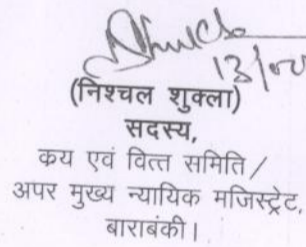 13/
(निश्चल शुक्ला)
सदस्य,
कय एवं वित्त समिति/
अपर मुख्य न्यायिक मजिस्ट्रेट,
बाराबंकी।